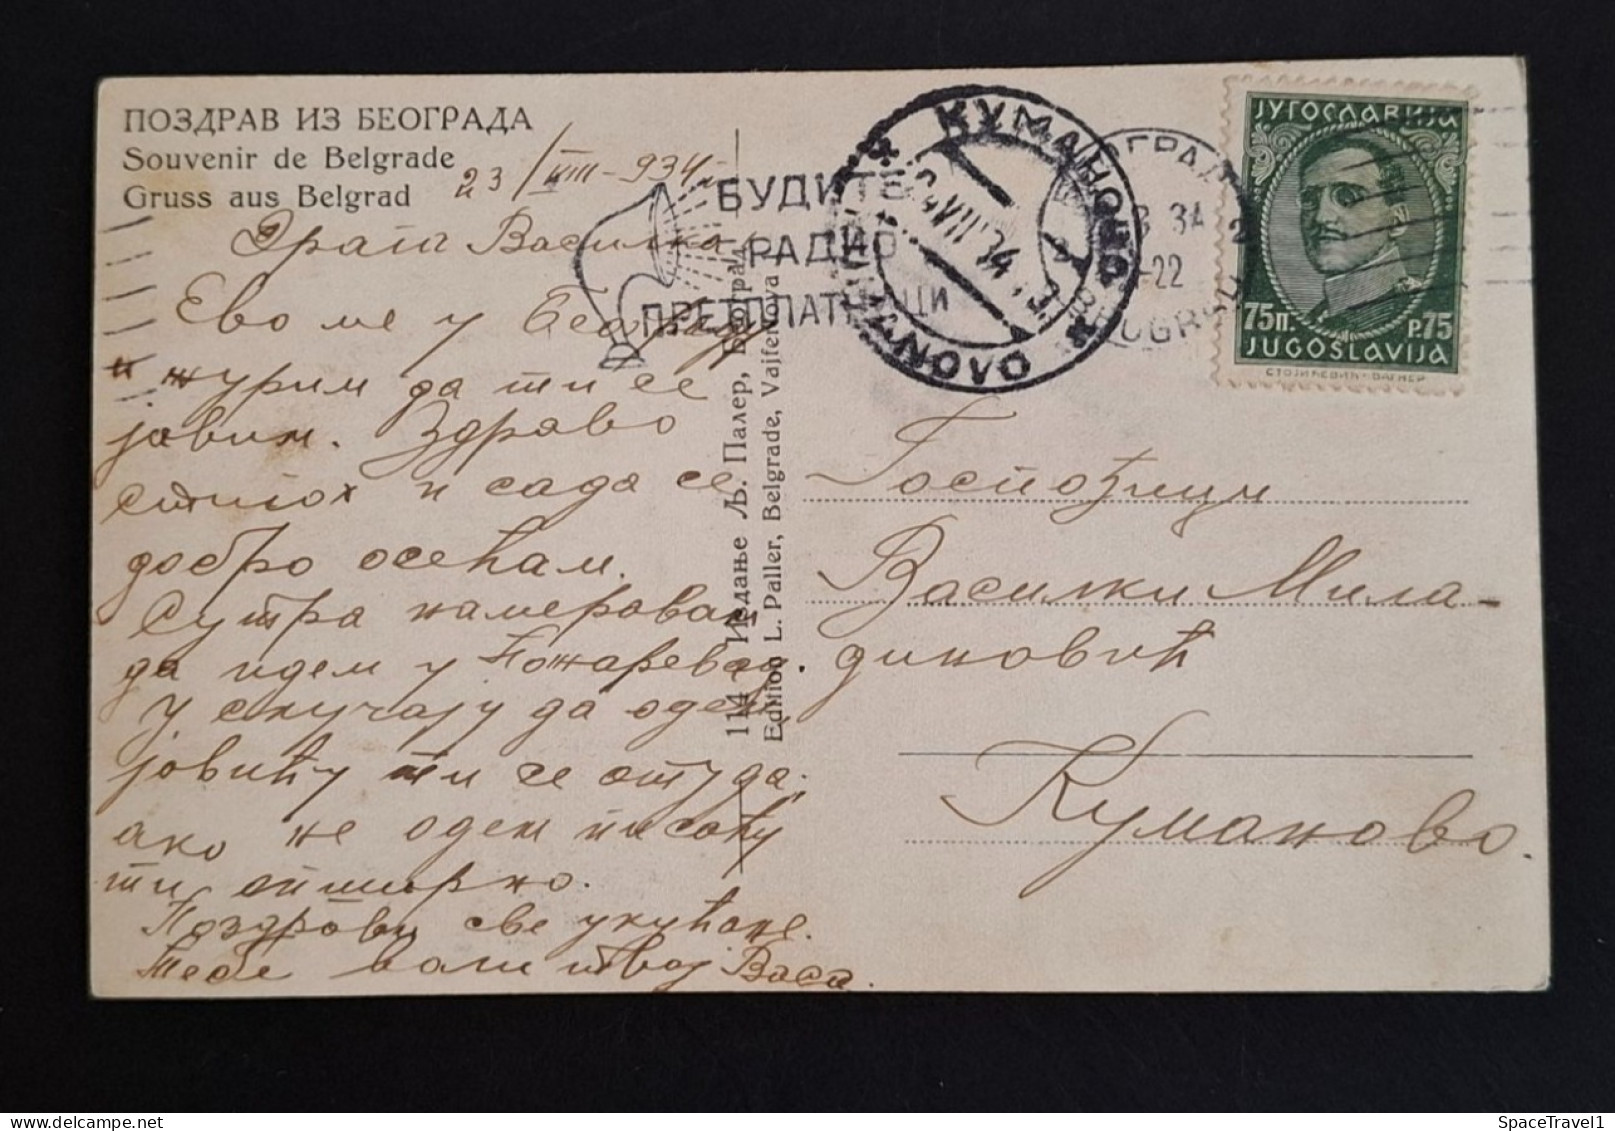 ПОЗДРАВ ИЗ БЕОГРАДА
Souvenir de Belgrade
Gruss aus Belgrad
23/VIII-934
Драга Василка
Ево ме у Београду
и журим да ти се
јавим. Здраво
стигох и сада се
добро осећам.
Сутра намеравам
да идем у Пожаревац.
У случају да одем,
јовићу ти се отуда.
ако не одем писаћу
ти опширно.
Поздрави све укућане.
Тебе воли твој Васа.
114 Издање Љ. Палер, Београд
Edition L. Paller, Belgrade, Vajfertova
БУДИТЕ
РАДИО
ПРЕТПЛАТНИЦИ
КУМАНОВО
KUMANOVO
VIII 34
БЕОГРАД
34 2
-22
BEOGRAD
ЈУГОСЛАВИЈА
75П. P.75
JUGOSLAVIJA
СТОЈИЋЕВИЋ-ВАГНЕР
Госпођици
Василки Мила-
диновић
Куманово.
SpaceTravel1